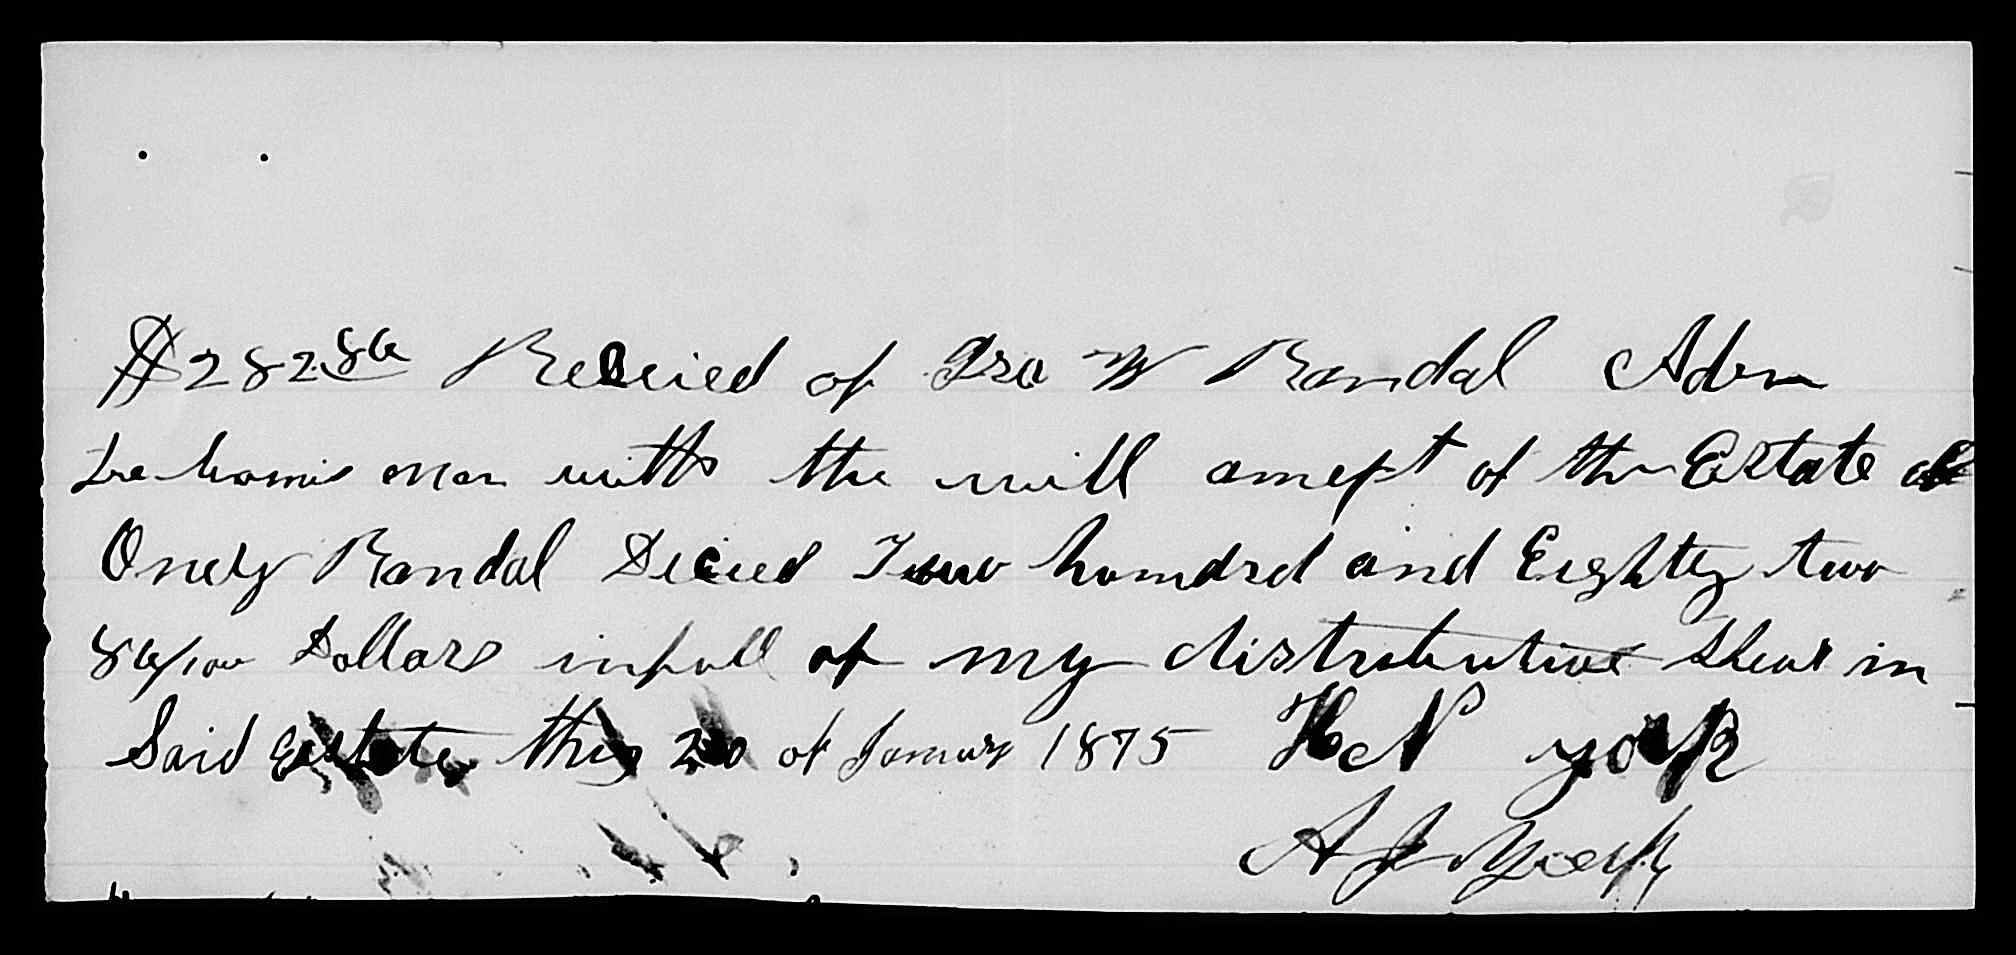 $282.86 Recieied of Ira W Randal Adem
with the will anext of the Estate of
Onely Randal Decied Two homdred and Eighty two
86/100 Dollars in full of my distributive Shear in
Said Estate this 20 of Januay 1875 H N york
A J York